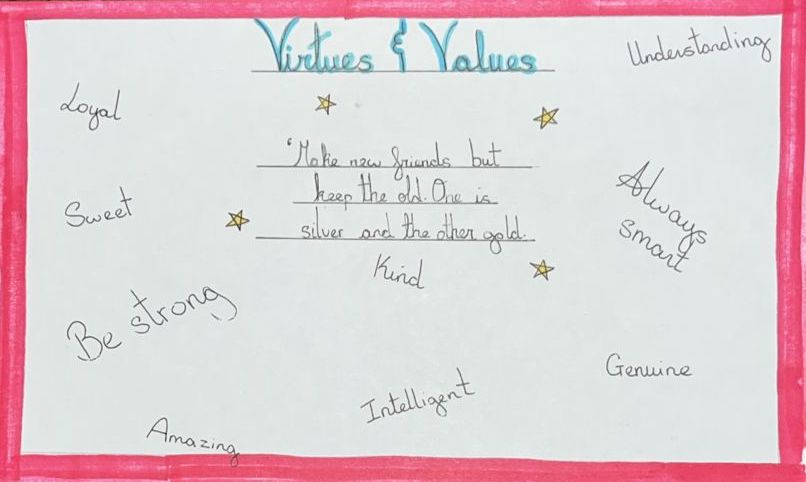 Virtues & Values
Understanding
Loyal
'Make new friends but
keep the old. One is
silver and the other gold.
Sweet
Always
smart
Kind
Be strong
Genuine
Intelligent
Amazing